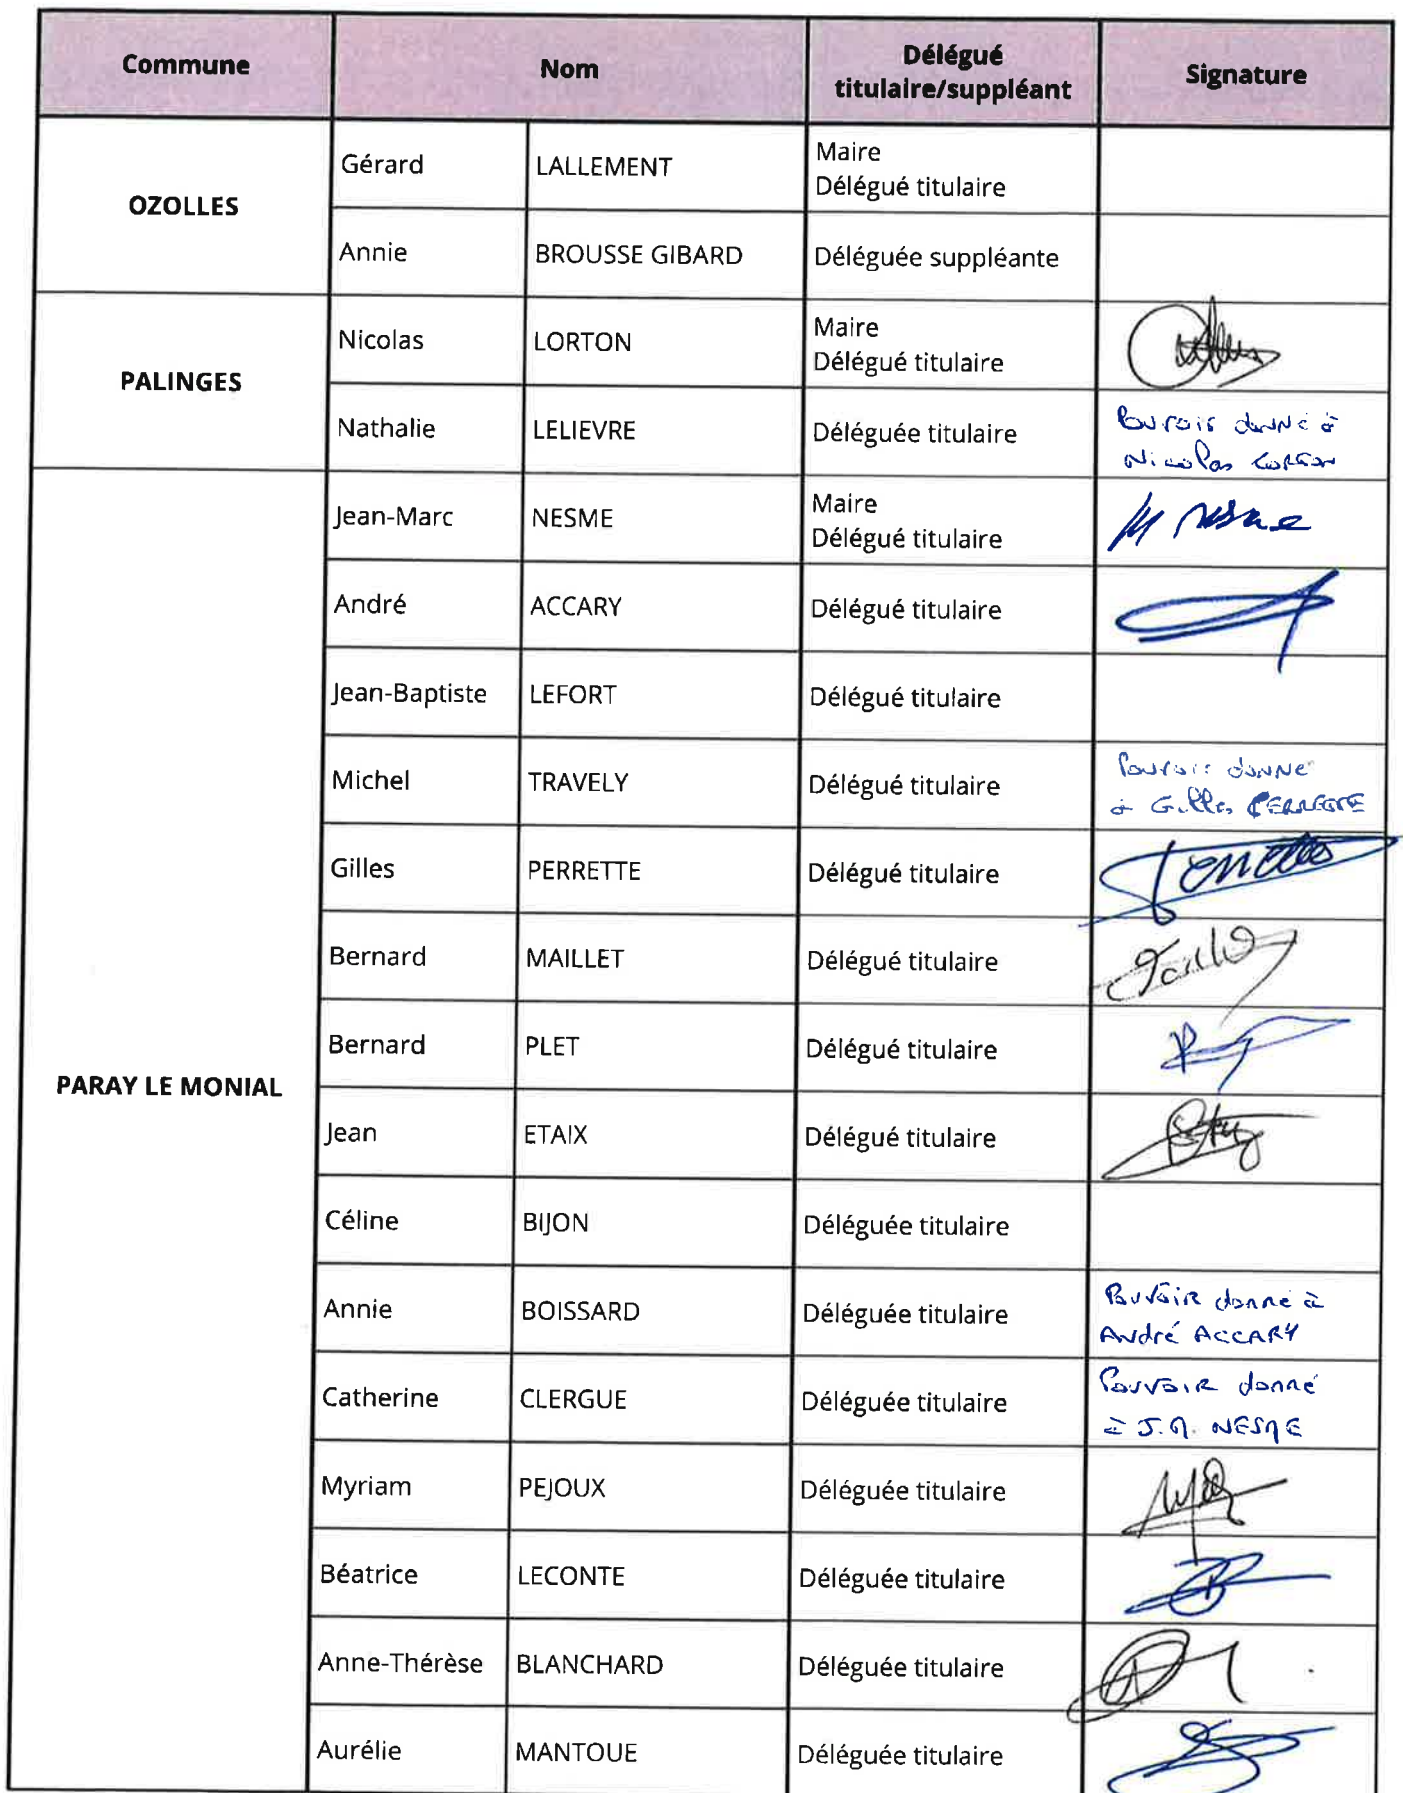 Commune Nom Délégué titulaire/suppléant Signature
OZOLLES
Gérard LALLEMENT Maire
Délégué titulaire
Annie BROUSSE GIBARD Déléguée suppléante
PALINGES
Nicolas LORTON Maire
Délégué titulaire
Nathalie LELIEVRE Déléguée titulaire Pouvoir donné à
Nicolas LORTON
PARAY LE MONIAL
Jean-Marc NESME Maire
Délégué titulaire
André ACCARY Délégué titulaire
Jean-Baptiste LEFORT Délégué titulaire
Michel TRAVELY Délégué titulaire Pouvoir donné
à Gilles PERRETTE
Gilles PERRETTE Délégué titulaire
Bernard MAILLET Délégué titulaire
Bernard PLET Délégué titulaire
Jean ETAIX Délégué titulaire
Céline BIJON Déléguée titulaire
Annie BOISSARD Déléguée titulaire Pouvoir donné à
André ACCARY
Catherine CLERGUE Déléguée titulaire Pouvoir donné
à J.M. NESME
Myriam PEJOUX Déléguée titulaire
Béatrice LECONTE Déléguée titulaire
Anne-Thérèse BLANCHARD Déléguée titulaire
Aurélie MANTOUE Déléguée titulaire